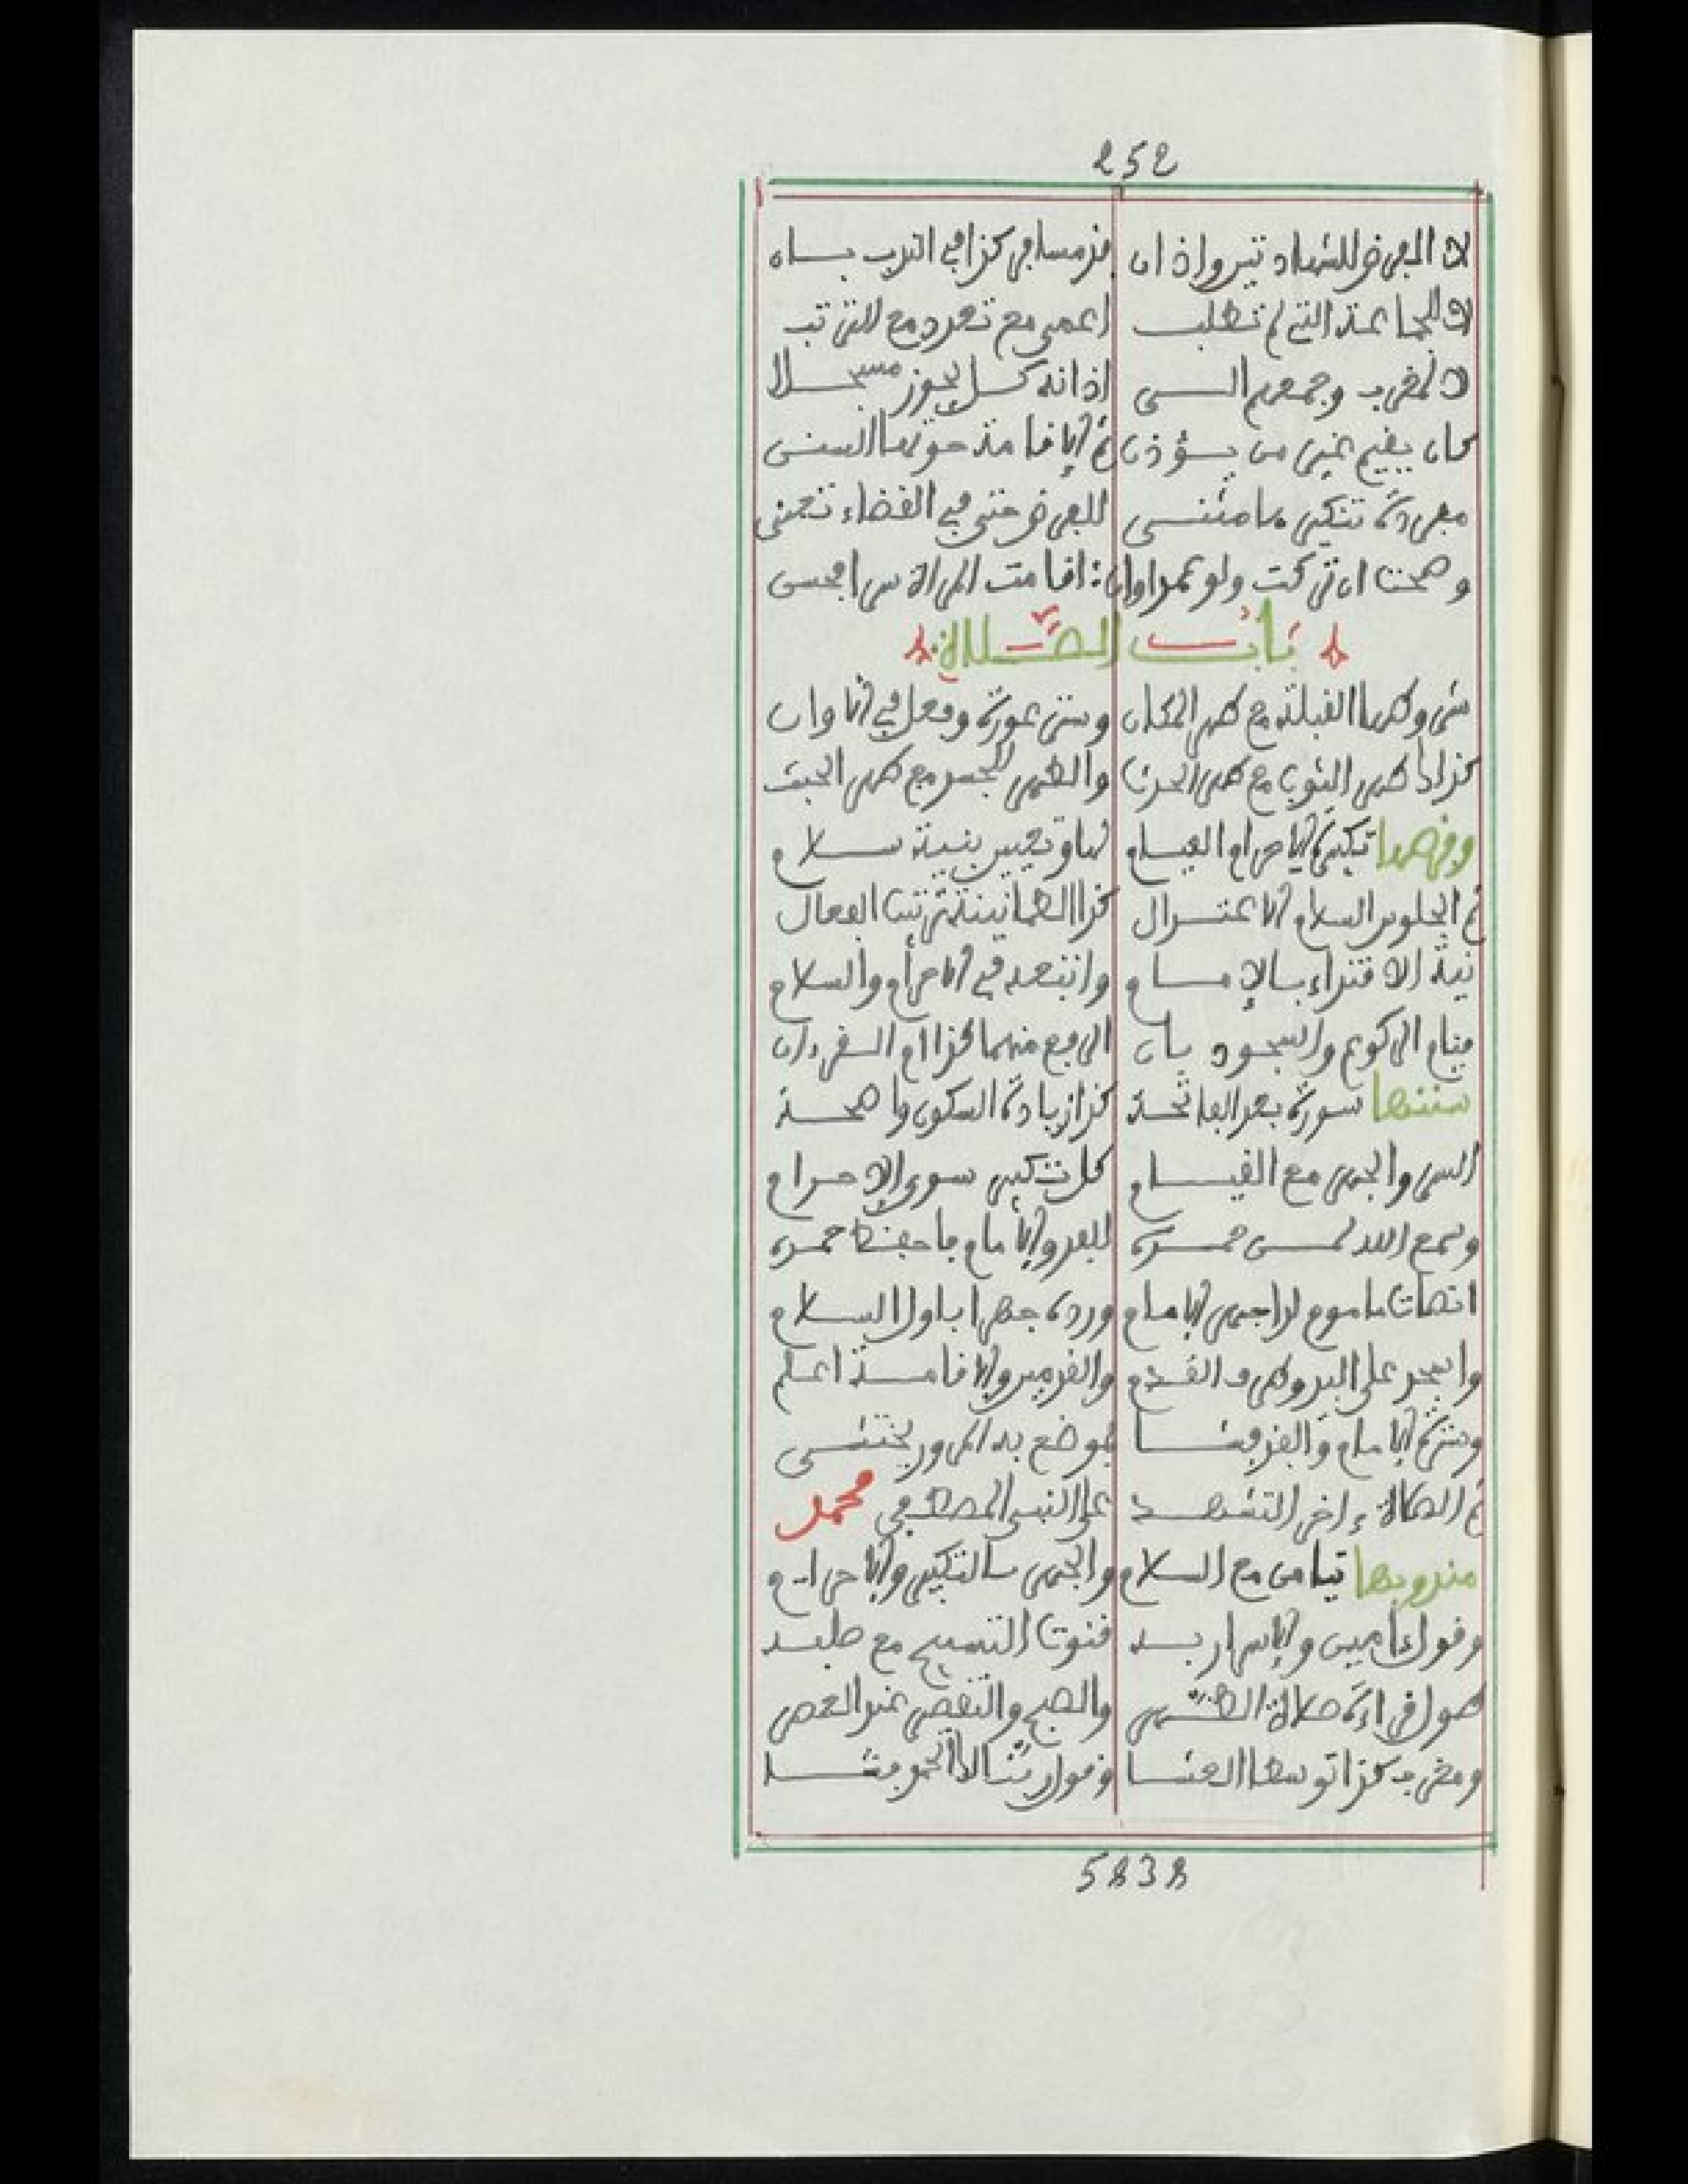 252
لا الفرض للشهاد تير واذان فذ مسافر كذا في الندب بان
لا لجماعة التي لم تطلب اعمى مع تعدد مع الترتب
لا لمغرب وجمعهم اذانه كل يجوز مسجلا
كان يقيم غير من يؤذن ثم الاقامة حوتها السنن
مفردة تنكير ما مثنى للفرض حتى في القضاء تعنى
وصحت ان تركت ولو عمدا وان : اقامت المراة سرا فحسن
باب الصلاة
شروطها القبلة مع طهر المكان وستر عورة وفعل في الاوان
كذا طهر الثوب مع طهر الحدث والطهر للجسم مع طهر الخبث
وفرضها تكبيرة الاحرام القيام لها وتعيين بنية سلام
ثم الجلوس للسلام الاعتدال كذا الطمانينة ترتيب الفعال
نية الاقتداء بالإمام واتبعه في الاحرام والسلام
قيام الركوع والسجود بان الرفع منهما كذا ام القردان
سننها سورة بعد الفاتحة كذا زيادة السكون واضحة
السر والجهر مع القيام كل تكبير سوى الاحرام
وسمع الله لمن حمده للفذ والامام فاحفظ حمده
انصات ماموم لدا جهر الامام وردة جهرا باول السلام
واسجد على اليد وطرف القدم والفدمين والاقامة اعلم
وسترة الامام والفذ فشا بموضع به المرور يختشى
ثم الصلاة ءاخر التشهد على النبي المصطفى محمد
مندوبها تيامن مع السلام والجهر بالتكبير والاحرام
وقول ءامين والاسرار به قنوت التسبيح مع طلبه
طول قراءة صلاة الظهر والصبح والتقصير عند العصر
ومغرب كذا توسط العشا وقول ربنا لك الحمد فشا
5838